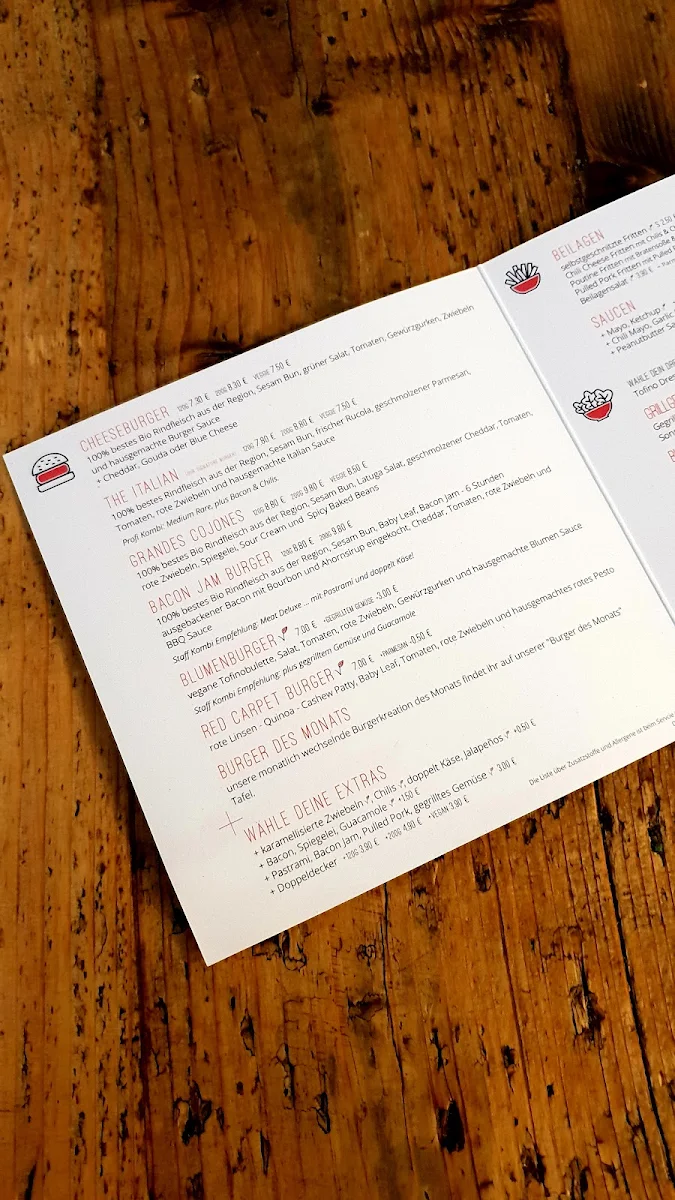 CHEESEBURGER 120G 7.30 € 200G 8.30 € VEGGIE 7.50 €
100% bestes Bio Rindfleisch aus der Region, Sesam Bun, grüner Salat, Tomaten, Gewürzgurken, Zwiebeln
und hausgemachte Burger Sauce
+ Cheddar, Gouda oder Blue Cheese
THE ITALIAN 120G 7.80 € 200G 8.80 € VEGGIE 7.50 €
100% bestes Rindfleisch aus der Region, Sesam Bun, frischer Rucola, geschmolzener Parmesan,
Tomaten, rote Zwiebeln und hausgemachte Italian Sauce
Profi Kombi: Medium Rare, plus Bacon & Chilis.
GRANDES COJONES 120G 8.80 € 200G 9.80 € VEGGIE 8.50 €
100% bestes Bio Rindfleisch aus der Region, Sesam Bun, Latuga Salat, geschmolzener Cheddar, Tomaten,
rote Zwiebeln, Spiegelei, Sour Cream und Spicy Baked Beans
BACON JAM BURGER 120G 8.80 € 200G 9.80 €
100% bestes Bio Rindfleisch aus der Region, Sesam Bun, Baby Leaf, Bacon Jam - 6 Stunden
ausgebackener Bacon mit Bourbon und Ahornsirup eingekocht, Cheddar, Tomaten, rote Zwiebeln und
BBQ Sauce
Staff Kombi Empfehlung: Meat Deluxe ... mit Pastrami und doppelt Käse!
BLUMENBURGER 7.00 € +GEGRILLTEM GEMÜSE -3.00 €
vegane Tofinobulette, Salat, Tomaten, rote Zwiebeln, Gewürzgurken und hausgemachte Blumen Sauce
Staff Kombi Empfehlung: plus gegrilltem Gemüse und Guacamole
RED CARPET BURGER 7.00 € +PARMESAN -0.50 €
rote Linsen - Quinoa - Cashew Patty, Baby Leaf, Tomaten, rote Zwiebeln und hausgemachtes rotes Pesto
BURGER DES MONATS
unsere monatlich wechselnde Burgerkreation des Monats findet Ihr auf unserer "Burger des Monats"
Tafel.
WÄHLE DEINE EXTRAS
+ karamellisierte Zwiebeln, Chilis, doppelt Käse, Jalapeños +0.50 €
+ Bacon, Spiegelei, Guacamole +1.50 €
+ Pastrami, Bacon Jam, Pulled Pork, gegrilltes Gemüse 3.00 €
+ Doppeldecker +120G 3.90 € +200G 4.90 € +VEGAN 3.90 €
Die Liste über Zusatzstoffe und Allergene ist beim Service
BEILAGEN
selbstgeschnitzte Fritten S 2.50
Chili Cheese Fritten mit Chilis &
Poutine Fritten mit Bratensoße &
Pulled Pork Fritten mit Pulled
Beilagensalat 3.90 €
SAUCEN
+ Mayo, Ketchup
+ Chili Mayo, Garlic
+ Peanutbutter
WÄHLE DEIN
Tofino